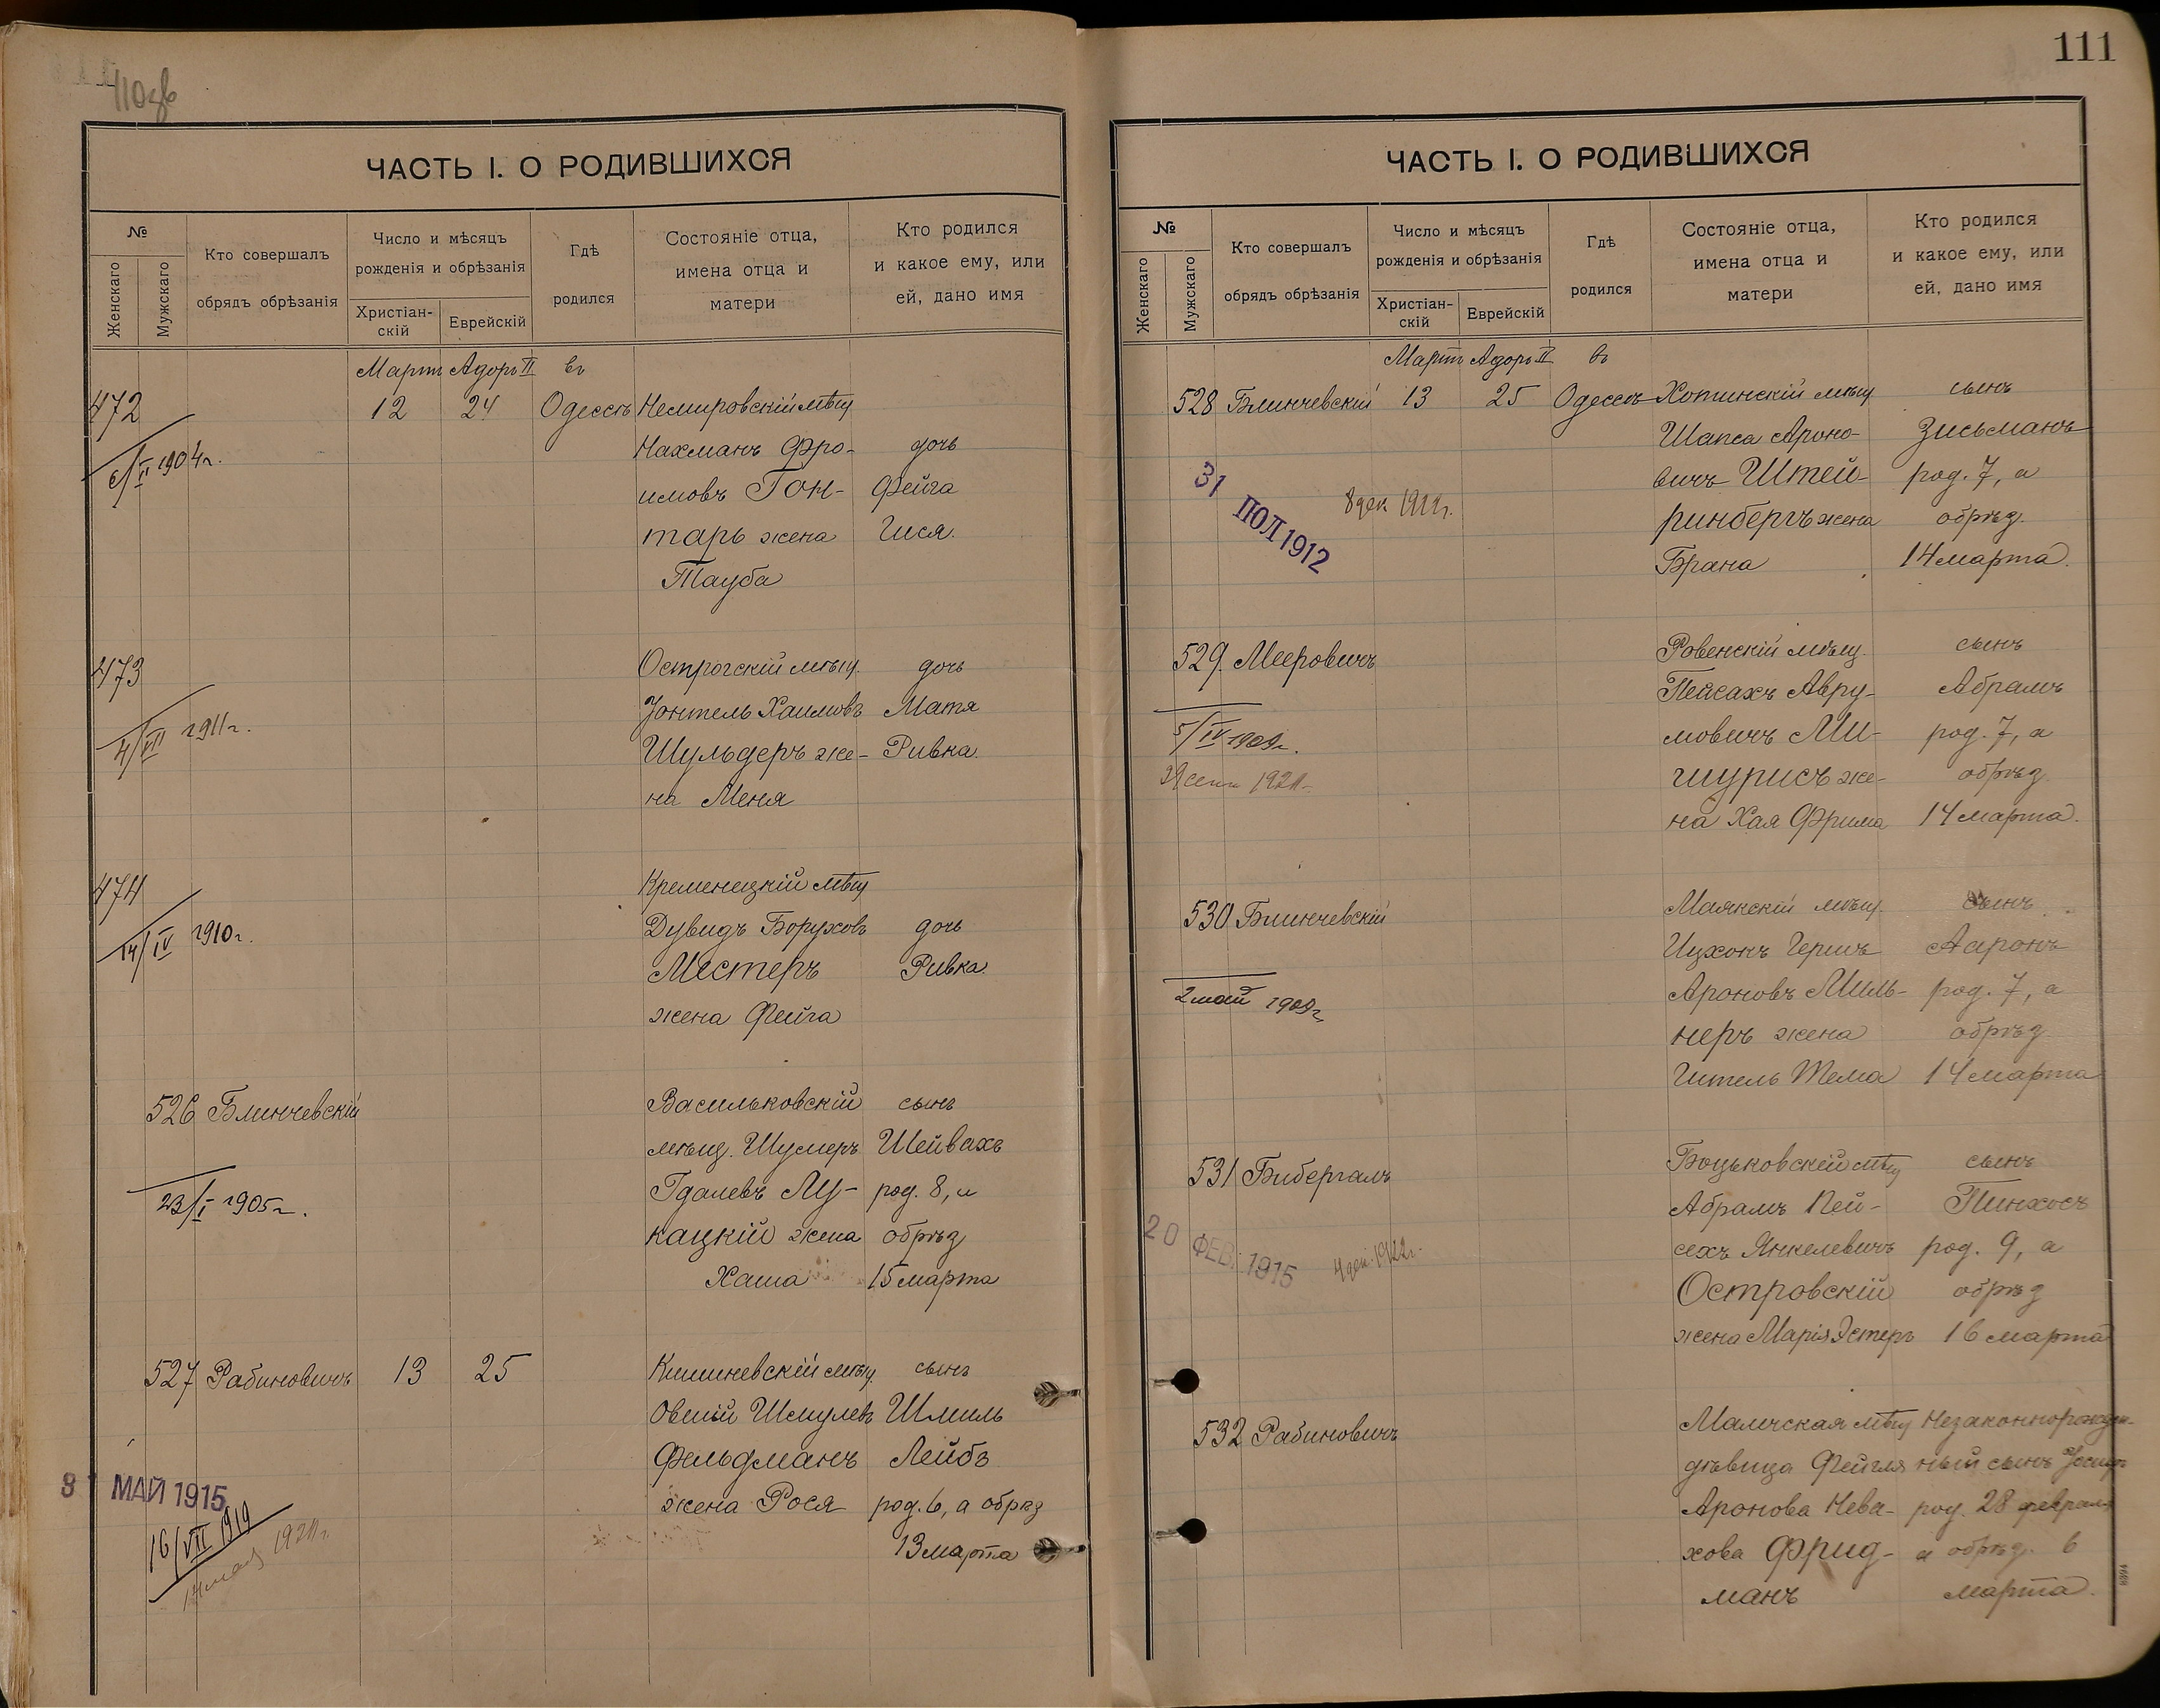 110об
ЧАСТЬ I. О РОДИВШИХСЯ
№
Женскаго
Мужскаго
Кто совершалъ
обрядъ обрѣзанія
Число и мѣсяцъ
рожденія и обрѣзанія
Христіан-
скій
Еврейскій
Гдѣ
родился
Состояніе отца,
имена отца и
матери
Кто родился
и какое ему, или
ей, дано имя
Мартъ Адоръ II въ
472 12 24 Одессѣ Немировскій мѣщ
Нахманъ Фро- дочь
6/II 1904 г.
имовъ Гон- Фейга
тарь жена Гися.
Тауба
473 Острогскій мѣщ. дочь
Іонтель Хаимовъ Матя
4/VII 1911 г.
Шульдеръ же- Ривка.
на Меня
474 Кременецкій мѣщ
Дувидъ Боруховъ дочь
14/IV 1910 г.
Местеръ Ривка.
жена Фейга
526 Блинчевскій Васильковскій сынъ
мѣщ. Шумеръ Шейвахъ
23/I 1905 г.
Гдалевъ Лу- род. 8, а
кацкій жена обрѣз
Хаша 15 марта
527 Рабиновичъ 13 25 Кишиневскій мѣщ. сынъ
Овшій Шмулевъ Шмиль
Фельдманъ Лейбъ
31 МАЙ 1915
жена Рося род. 6, а обрѣз
16/VII 1919
13 марта
111
ЧАСТЬ I. О РОДИВШИХСЯ
№
Женскаго
Мужскаго
Кто совершалъ
обрядъ обрѣзанія
Число и мѣсяцъ
рожденія и обрѣзанія
Христіан-
скій
Еврейскій
Гдѣ
родился
Состояніе отца,
имена отца и
матери
Кто родился
и какое ему, или
ей, дано имя
Мартъ Адоръ II въ
528 Блинчевскій 13 25 Одессѣ Хотинскій мѣщ сынъ
Шапса Ароно- Зисьманъ
вичъ Штей- род. 7, а
31 ІЮЛ 1912
8 дек
ринбергъ жена обрѣз.
Брана 14 марта.
529. Мееровичъ Ровенскій мѣщ. сынъ
Пейсахъ Авру- Абрамъ
5/IV 1909 г.
мовичъ Ми- род. 7, а
шурисъ же- обрѣз
на Хая Фрима 14 марта.
530 Блинчевскій Маякскій мѣщ. сынъ
Ицхокъ Гершъ Ааронъ
2 май 1909 г
Ароновъ Миль- род. 7, а
неръ жена обрѣз
Гитель Тема 14 марта
531 Бибергалъ Боцьковскій мѣщ сынъ
Абрамъ Пей- Пинхосъ
20 ФЕВ. 1915
1922 г.
сехъ Янкелевичъ род. 9, а
Островскій обрѣз
жена Марія Эстеръ 16 марта
532 Рабиновичъ мѣщ Незаконнорожден-
дѣвица Фейгля ный сынъ
Аронова Нева- род. 28 февраля
хова Фрид- а обрѣз. 6
манъ марта.